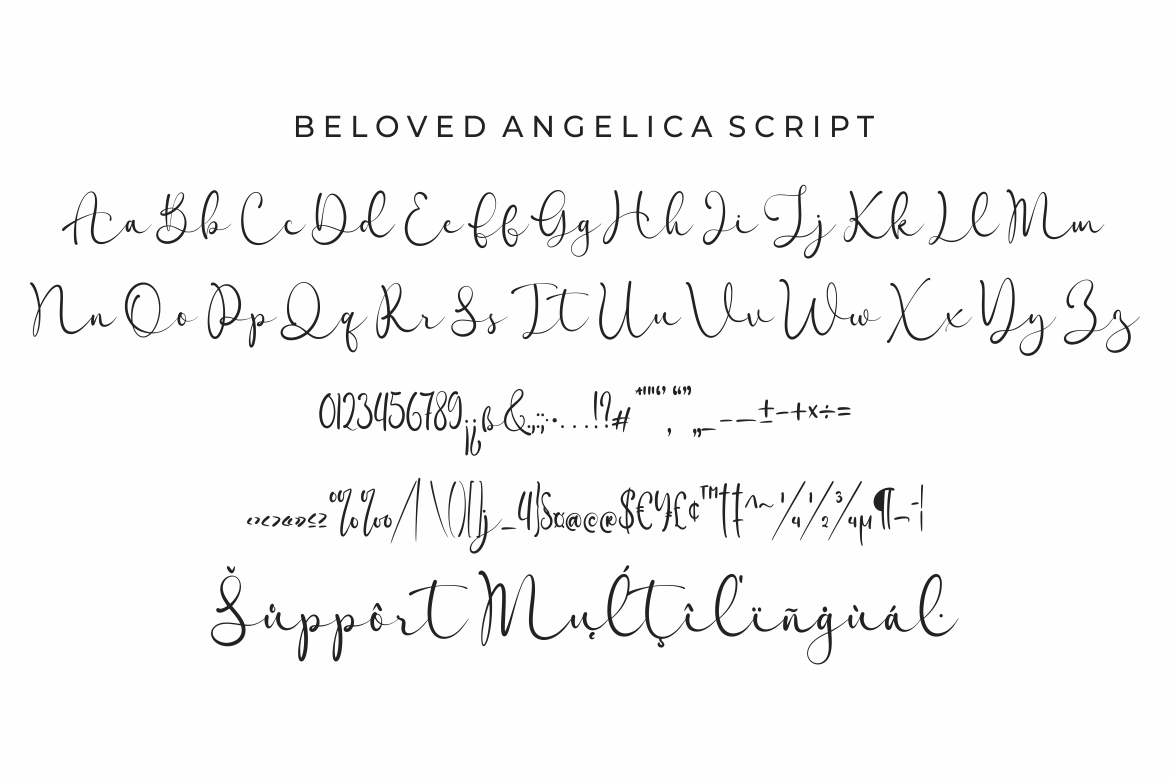 BELOVED ANGELICA SCRIPT
Aa Bb Cc Dd Ee Ff Gg Hh Ii Jj Kk Ll Mm
Nn Oo Pp Qq Rr Ss Tt Uu Vv Ww Xx Yy Zz
0123456789¡¿ß&.,:;·•…!?#"'‘’“”‚„_-–—±−+×÷=
‹›<>«»≤≥%‰/|\()[]{_}§¤@©®$€¥£¢™†‡^~¼½¾µ¶¬¦
Šůppôrt Mųĺţîľïñġùáŀ